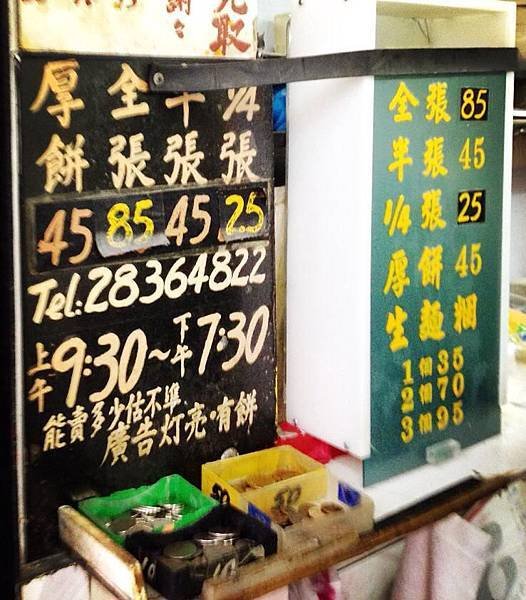 謝謝
取
厚 全 半 1/4
餅 張 張 張
45 85 45 25
Tel:28364822
上午9:30~下午7:30
能賣多少估不準
廣告灯亮·有餅
全張 85
半張 45
1/4張 25
厚餅 45
生麵糰
1個35
2個70
3個95
50
10